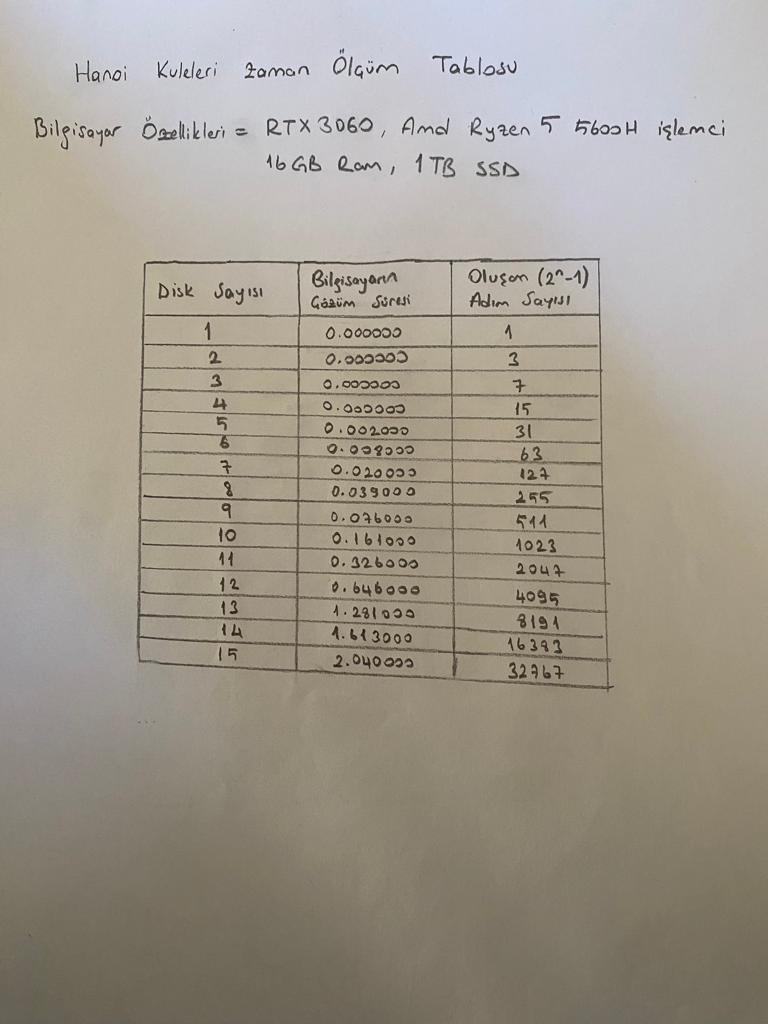 Hanoi Kuleleri Zaman Ölçüm Tablosu
Bilgisayar Özellikleri = RTX 3060, Amd Ryzen 5 5600H işlemci
16 GB Ram, 1 TB SSD
Disk Sayısı | Bilgisayarın Çözüm Süresi | Oluşan (2^n-1) Adım Sayısı
1 | 0.000000 | 1
2 | 0.000000 | 3
3 | 0.000000 | 7
4 | 0.000000 | 15
5 | 0.002000 | 31
6 | 0.008000 | 63
7 | 0.020000 | 127
8 | 0.039000 | 255
9 | 0.076000 | 511
10 | 0.161000 | 1023
11 | 0.326000 | 2047
12 | 0.646000 | 4095
13 | 1.281000 | 8191
14 | 1.613000 | 16383
15 | 2.040000 | 32767